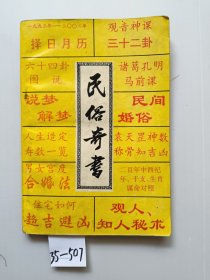 一九五三年——二〇〇〇年
择日月历
观音神课
三十二卦
六十四卦
图说
诸葛孔明
马前课
说梦
解梦
民俗奇书
民间
婚俗
人生造定
寿数一览
袁天罡神数
称骨知吉凶
男女宫度
合婚法
二百年中西纪
年、干支、生肖
属命对照
住宅如何
趋吉避凶
观人、
知人秘术
35-507